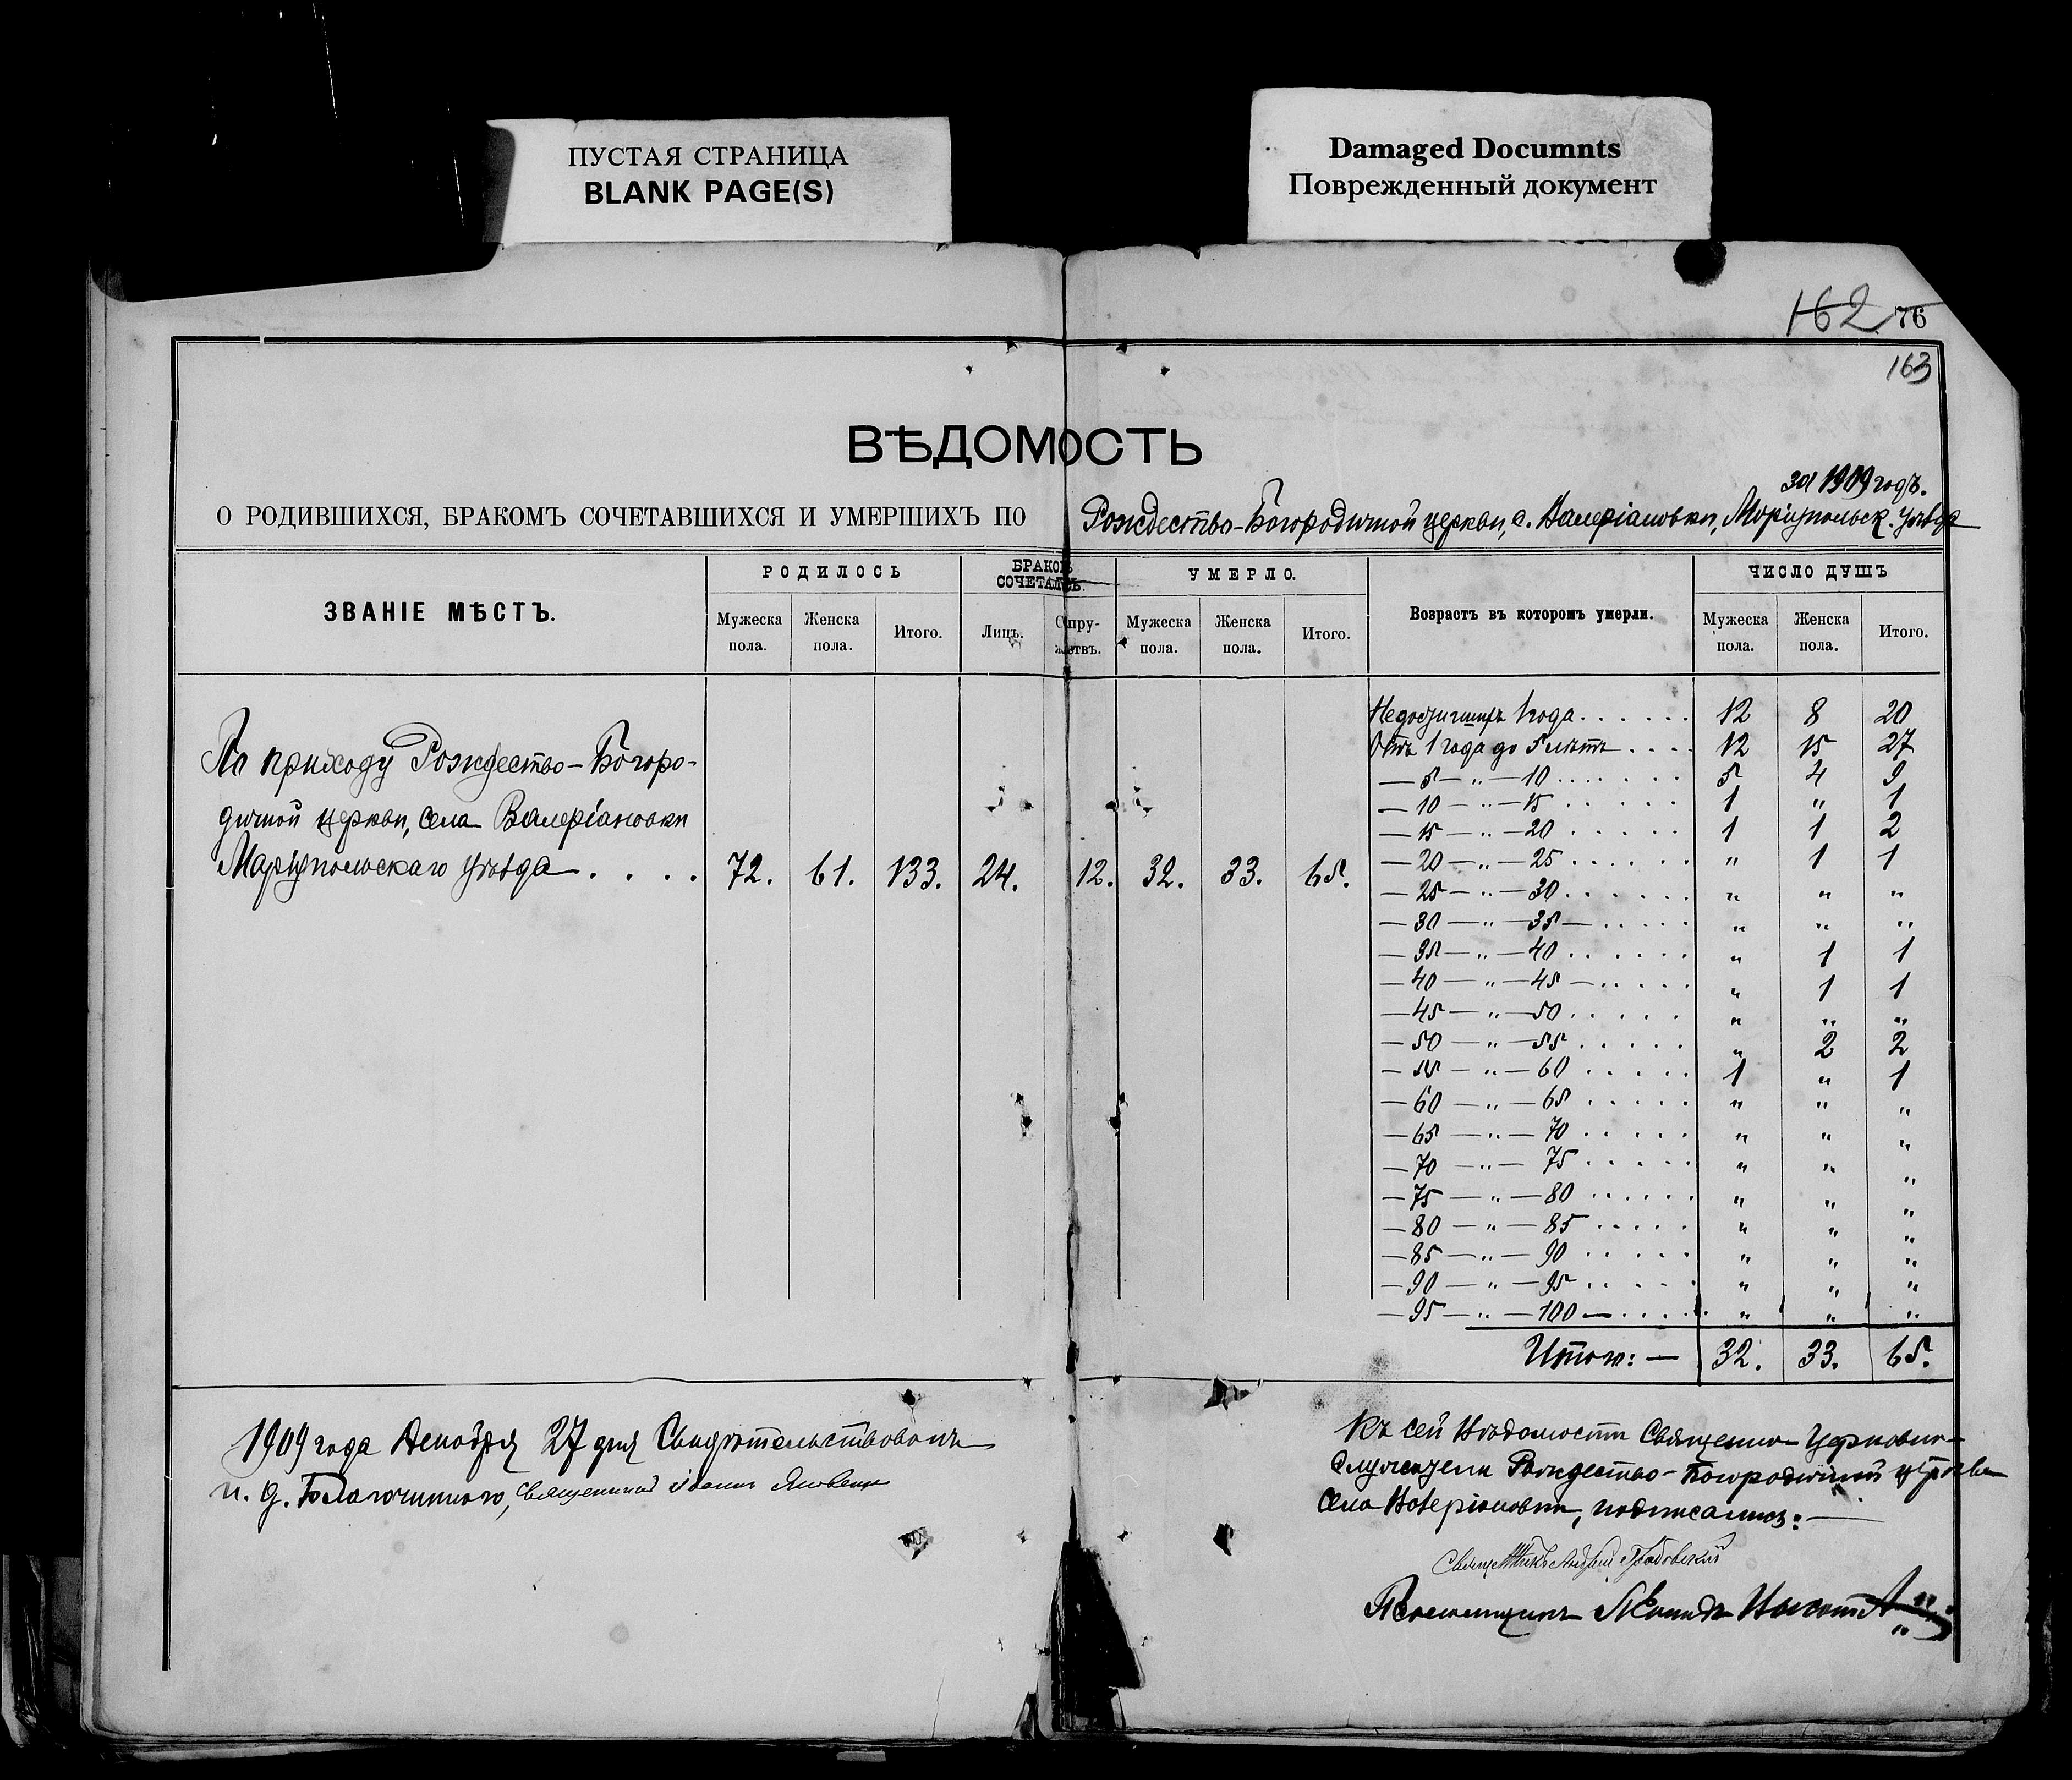 ПУСТАЯ СТРАНИЦА
BLANK PAGE(S)
Damaged Documnts
Поврежденный документ
162 76
163
ВѢДОМОСТЬ
за 1909 годъ.
О РОДИВШИХСЯ, БРАКОМЪ СОЧЕТАВШИХСЯ И УМЕРШИХЪ ПО Рождество-Богородичной церкви, с. Валеріановки, Маріупольск. уѣзда
ЗВАНІЕ МѢСТЪ. РОДИЛОСЬ БРАКОМЪ СОЧЕТАЛОСЬ. УМЕРЛО. Возрастъ въ которомъ умерли. ЧИСЛО ДУШЪ
Мужеска пола. Женска пола. Итого. Лицъ. Супружествъ. Мужеска пола. Женска пола. Итого. Мужеска пола. Женска пола. Итого.
По приходу Рождество-Богоро-
дичной церкви, села Валеріановки
Маріупольскаго уѣзда . . . . 72. 61. 133. 24. 12. 32. 33. 65.
Недожившихъ 1 года . . . . . . 12 8 20
Отъ 1 года до 5 лѣтъ . . . . 12 15 27
— 5 — „ — 10 . . . . . . . 5 4 9
— 10 — „ — 15 . . . . . . 1 „ 1
— 15 — „ — 20 . . . . . . 1 1 2
— 20 — „ — 25 . . . . . . „ 1 1
— 25 — „ — 30 . . . . . . „ „ „
— 30 — „ — 35 — . . . . . „ „ „
— 35 — „ — 40 . . . . . . „ 1 1
— 40 — „ — 45 — . . . . . „ 1 1
— 45 — „ — 50 . . . . . „ „ „
— 50 — „ — 55 . . . . . „ 2 2
— 55 — „ — 60 . . . . . 1 „ 1
— 60 — „ — 65 . . . . . „ „ „
— 65 — „ — 70 . . . . . „ „ „
— 70 — „ — 75 . . . . . „ „ „
— 75 — „ — 80 . . . . . . „ „ „
— 80 — „ — 85 . . . . . „ „ „
— 85 — „ — 90 . . . . . „ „ „
— 90 — „ — 95 . . . . . „ „ „
— 95 — „ — 100 — . . . . . „ „ „
Итого: — 32. 33. 65.
1909 года Декабря 27 дня Свидѣтельствовалъ
и. д. Благочиннаго, священникъ Іоаннъ Яковенко
Къ сей Вѣдомости Священно-Церковно-
служители Рождество-Богородичной церкви
села Валеріановки, подписались: —
Священникъ
Псаломщикъ Леонидъ